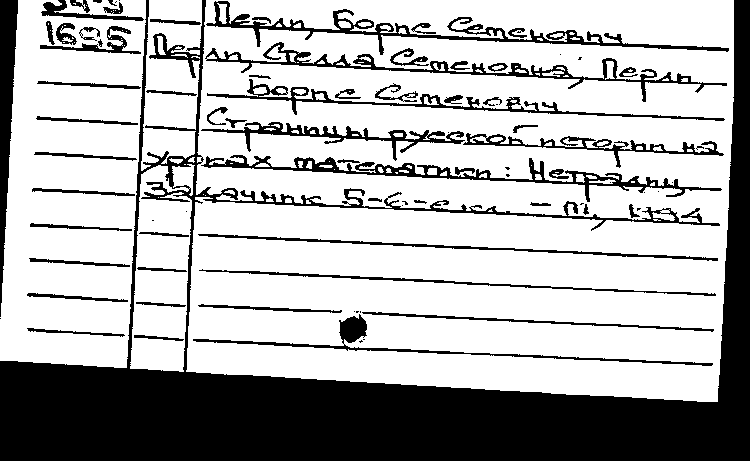 94-9 Перли, Борис Семенович
1695 Перли, Стелла Семеновна; Перли,
Борис Семенович
Страницы русской истории на
уроках математики: Нетрадиц.
Задачник 5-6-е кл. - М., 1994